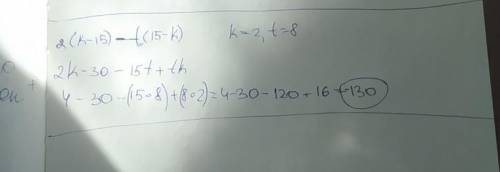 2(k-15) - t(15-k)   k=2, t=8
2k-30-15t+tk
4-30-(15∘8)+(8∘2)=4-30-120+16=-130